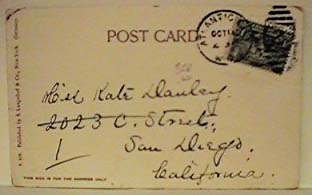 POST CARD
ATLANTIC
OCT 14
Miss Kate Danley
2023 C. Street,
1 San Diego.
California.
THIS SIDE IS FOR THE ADDRESS ONLY
Published by A. Langsdorf & Co., New York Germany.